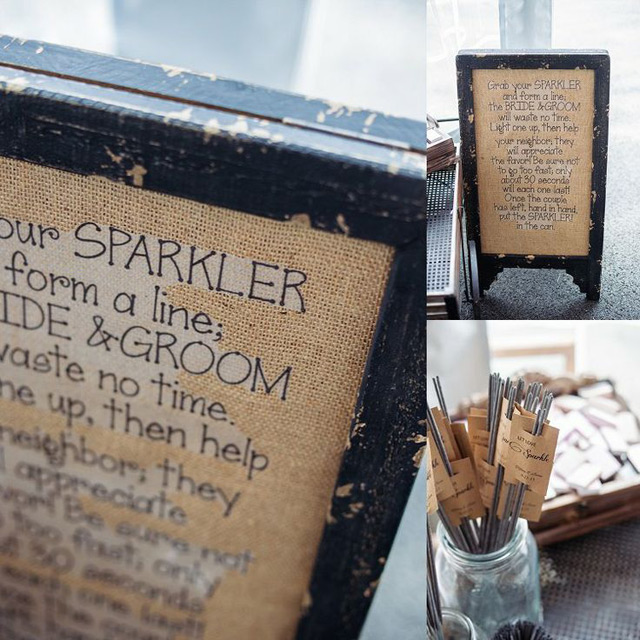 our SPARKLER
form a line;
IDE & GROOM
waste no time.
ne up, then help
neighbor; they
appreciate
favor! Be sure not
too fast; only
30 seconds
Grab your SPARKLER
and form a line;
the BRIDE & GROOM
will waste no time.
Light one up, then help
your neighbor; they
will appreciate
the favor! Be sure not
to go too fast; only
about 30 seconds
will each one last!
Once the couple
has left, hand in hand,
put the SPARKLER!
in the can.
LET LOVE
Sparkle